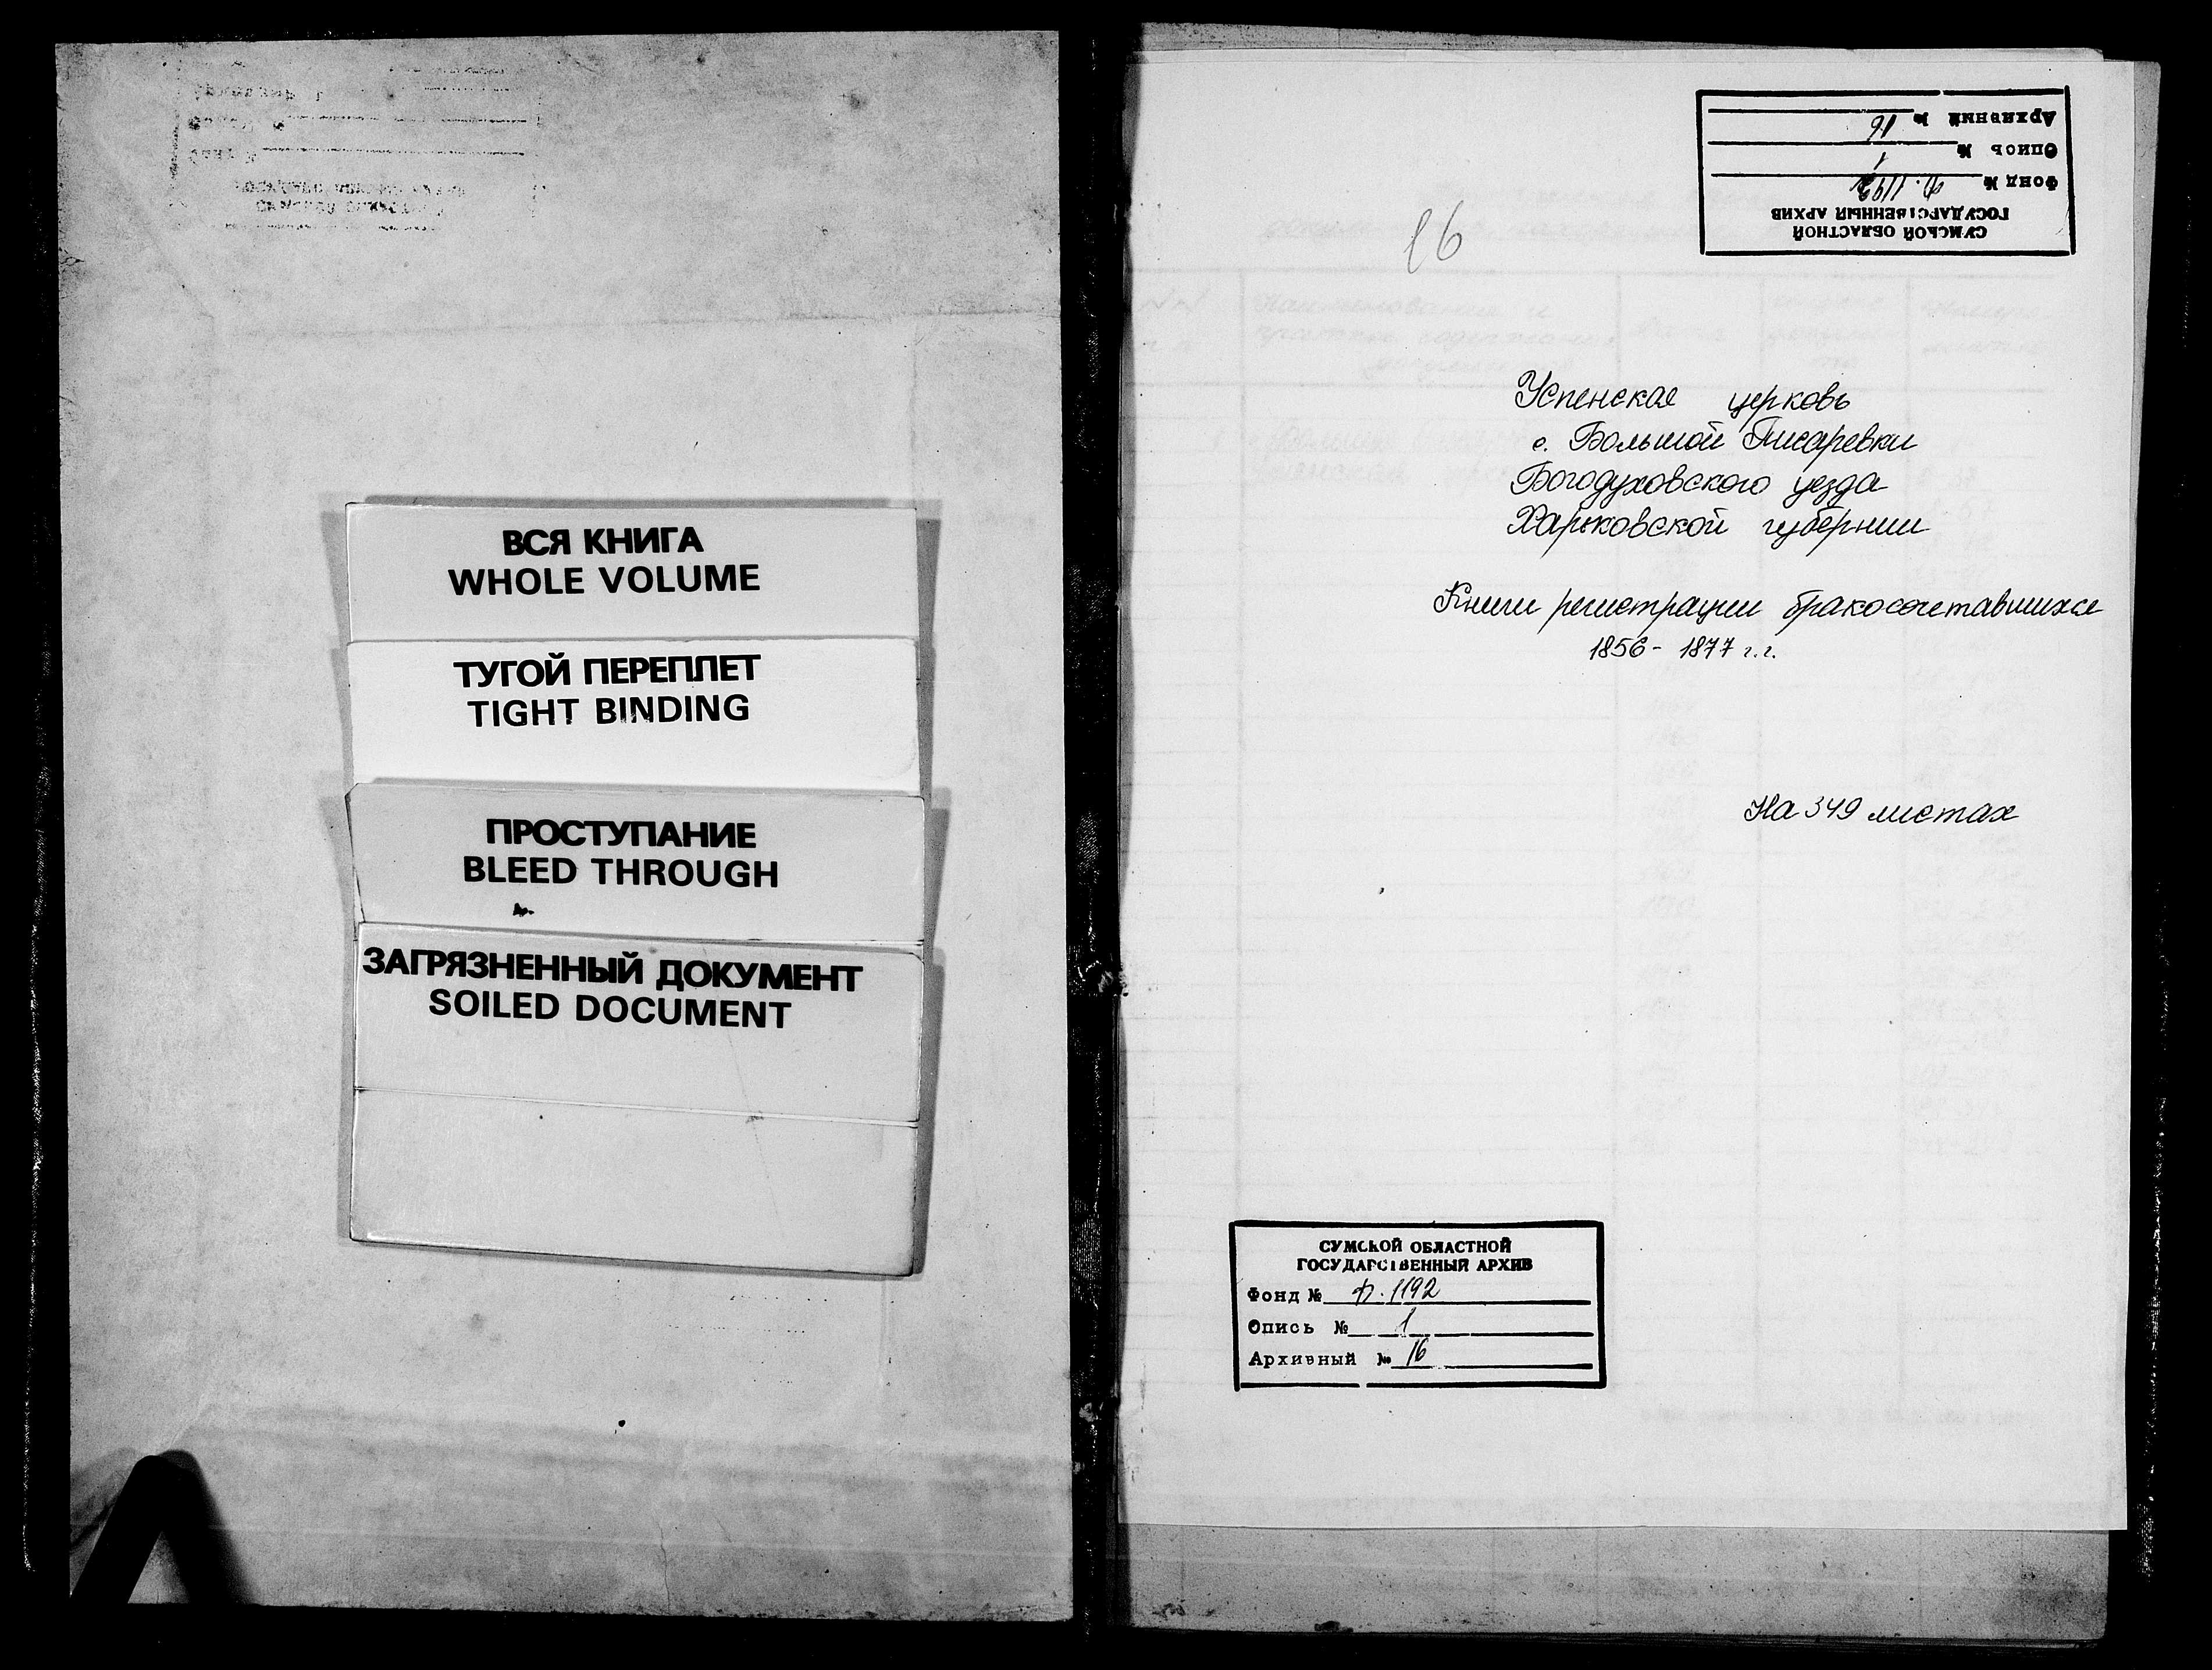 ВСЯ КНИГА
WHOLE VOLUME
ТУГОЙ ПЕРЕПЛЕТ
TIGHT BINDING
ПРОСТУПАНИЕ
BLEED THROUGH
ЗАГРЯЗНЕННЫЙ ДОКУМЕНТ
SOILED DOCUMENT
СУМСКОЙ ОБЛАСТНОЙ
ГОСУДАРСТВЕННЫЙ АРХИВ
Фонд № Ф. 1192
Опись № 1
Архивный № 16
16
Успенская церковь
с. Большой Писаревки
Богодуховского уезда
Харьковской губернии
Книги регистрации бракосочетавшихся
1856 - 1877 г.г.
На 349 листах
СУМСКОЙ ОБЛАСТНОЙ
ГОСУДАРСТВЕННЫЙ АРХИВ
Фонд № Ф. 1192
Опись № 1
Архивный № 16